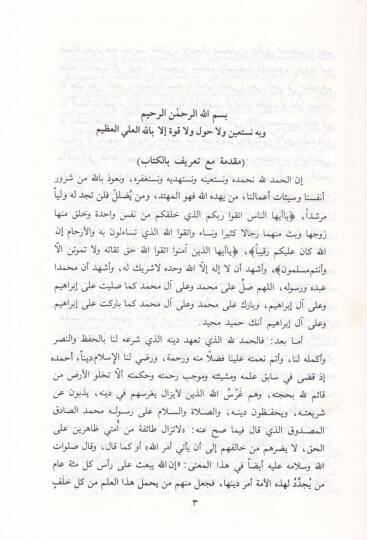 بسم الله الرحمن الرحيم
وبه نستعين ولا حول ولا قوة إلا بالله العلي العظيم
(مقدمة مع تعريف بالكتاب)
إن الحمد لله نحمده ونستعينه ونستهديه ونستغفره، ونعوذ بالله من شرور
أنفسنا وسيئات أعمالنا، من يهده الله فهو المهتد، ومن يُضلل فلن تجد له ولياً
مرشداً، ﴿ياأيها الناس اتقوا ربكم الذي خلقكم من نفس واحدة وخلق منها
زوجها وبث منهما رجالا كثيرا ونساء واتقوا الله الذي تساءلون به والأرحام إن
الله كان عليكم رقيباً﴾، ﴿ياأيها الذين آمنوا اتقوا الله حق تقاته ولا تموتن الا
وأنتم مسلمون﴾، وأشهد أن لا إله إلّا الله وحده لاشريك له، وأشهد أن محمدا
عبده ورسوله، اللهم صلّ على محمد وعلى آل محمد كما صليت على إبراهيم
وعلى آل إبراهيم، وبارك على محمد وعلى آل محمد كما باركت على إبراهيم
وعلى آل إبراهيم انك حميد مجيد.
أما بعد: فالحمد لله الذي تعهد دينه الذي شرعه لنا بالحفظ والنصر
وأكمله لنا، وأتم نعمته علينا فضلًا منه ورحمة، ورضي لنا الإسلام ديناً، أحمده
إذ قضى في سابق علمه ومشيئته وموجب رحمته وحكمته ألّا تخلو الأرض من
قائم لله بحجته، وهم غَرْسُ الله الذين لايزال يغرسهم في دينه، يذبون عن
شريعته، ويحفظون دينه، والصلاة والسلام على رسوله محمد الصادق
المصدوق الذي قال فيما صح عنه: «لاتزال طائفة من أُمتي ظاهرين على
الحق، لا يضرهم من خالفهم إلى أن يأتي أمر الله» أو كما قال، وقال صلوات
الله وسلامه عليه أيضاً في هذا المعنى: «إن الله يبعث على رأس كل مئة عام
من يُجدِّدُ لهذه الأمة أمر دينها، فجعل منهم من يحمل هذا العلم من كل خلَفٍ
٣